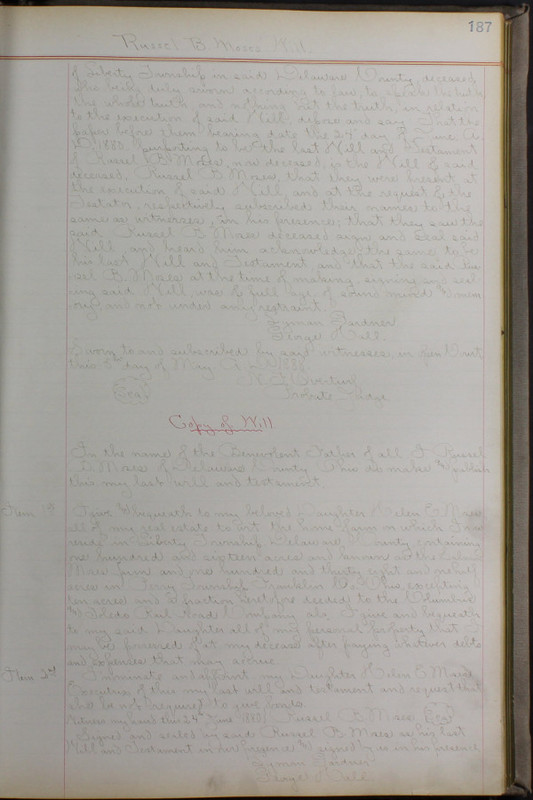 187
Russel B. Moses' Will.
of Liberty Township in said Delaware County, deceased
who being duly sworn according to law, to speak the truth
the whole truth, and nothing but the truth, in relation
to the execution of said Will, depose and say: That the
paper before them bearing date the 24th day of June A.
D. 1880, purporting to be the last Will and Testament
of Russel B. Moses, now deceased, is the Will of said
deceased, Russel B. Moses, that they were present at
the execution of said Will, and at the request of the
Testator, respectively subscribed their names to the
same as witnesses, in his presence; that they saw the
said Russel B. Moses deceased sign and seal said
Will, and heard him acknowledge the same to be
his last Will and Testament, and that the said Rus
sel B. Moses at the time of making, signing and seal
ing said Will, was of full age, of sound mind & mem
ory, and not under any restraint.
Lyman Gardner
George Hall
Sworn to and subscribed by said witnesses, in open Court
this day of May A. D. 1888
Probate Judge
Seal
Copy of Will
In the name of the Benevolent Father of all I Russel
B. Moses of Delaware County Ohio do make & publish
this my last will and testament.
Item 1st I give & bequeath to my beloved Daughter Helen E. Moses
all of my real estate to wit the home farm in which I now
reside in Liberty Township Delaware County containing
one hundred and sixteen acres and known as the
farm and one hundred and thirty eight and one half
acres in Perry Township Franklin Co. Ohio excepting
ten acres and a fraction heretofore deeded to the Columbus
& Toledo Rail Road Company also I give and bequeath
to my said Daughter all of my personal property that I
may be possessed of at my decease after paying whatever debts
and expenses that may accrue.
Item 2nd I nominate and appoint my Daughter Helen E. Moses
Executrix of this my last will and testament and request that
she be not required to give bonds.
Witness my hand this 24th June 1880 Russel B. Moses Seal
Signed and sealed in said Russel B. Moses as his last
Will and Testament in our presence & signed by us in his presence
Lyman Gardner
George Hall